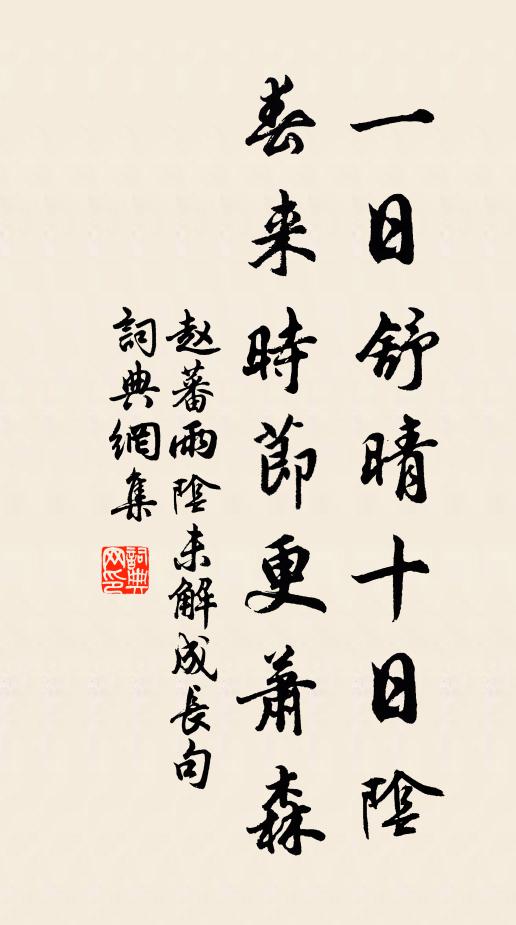 一日舒晴十日陰
春来時節更蕭森
赵蕃雨陰未解成長句
詞典網集
詞典网印